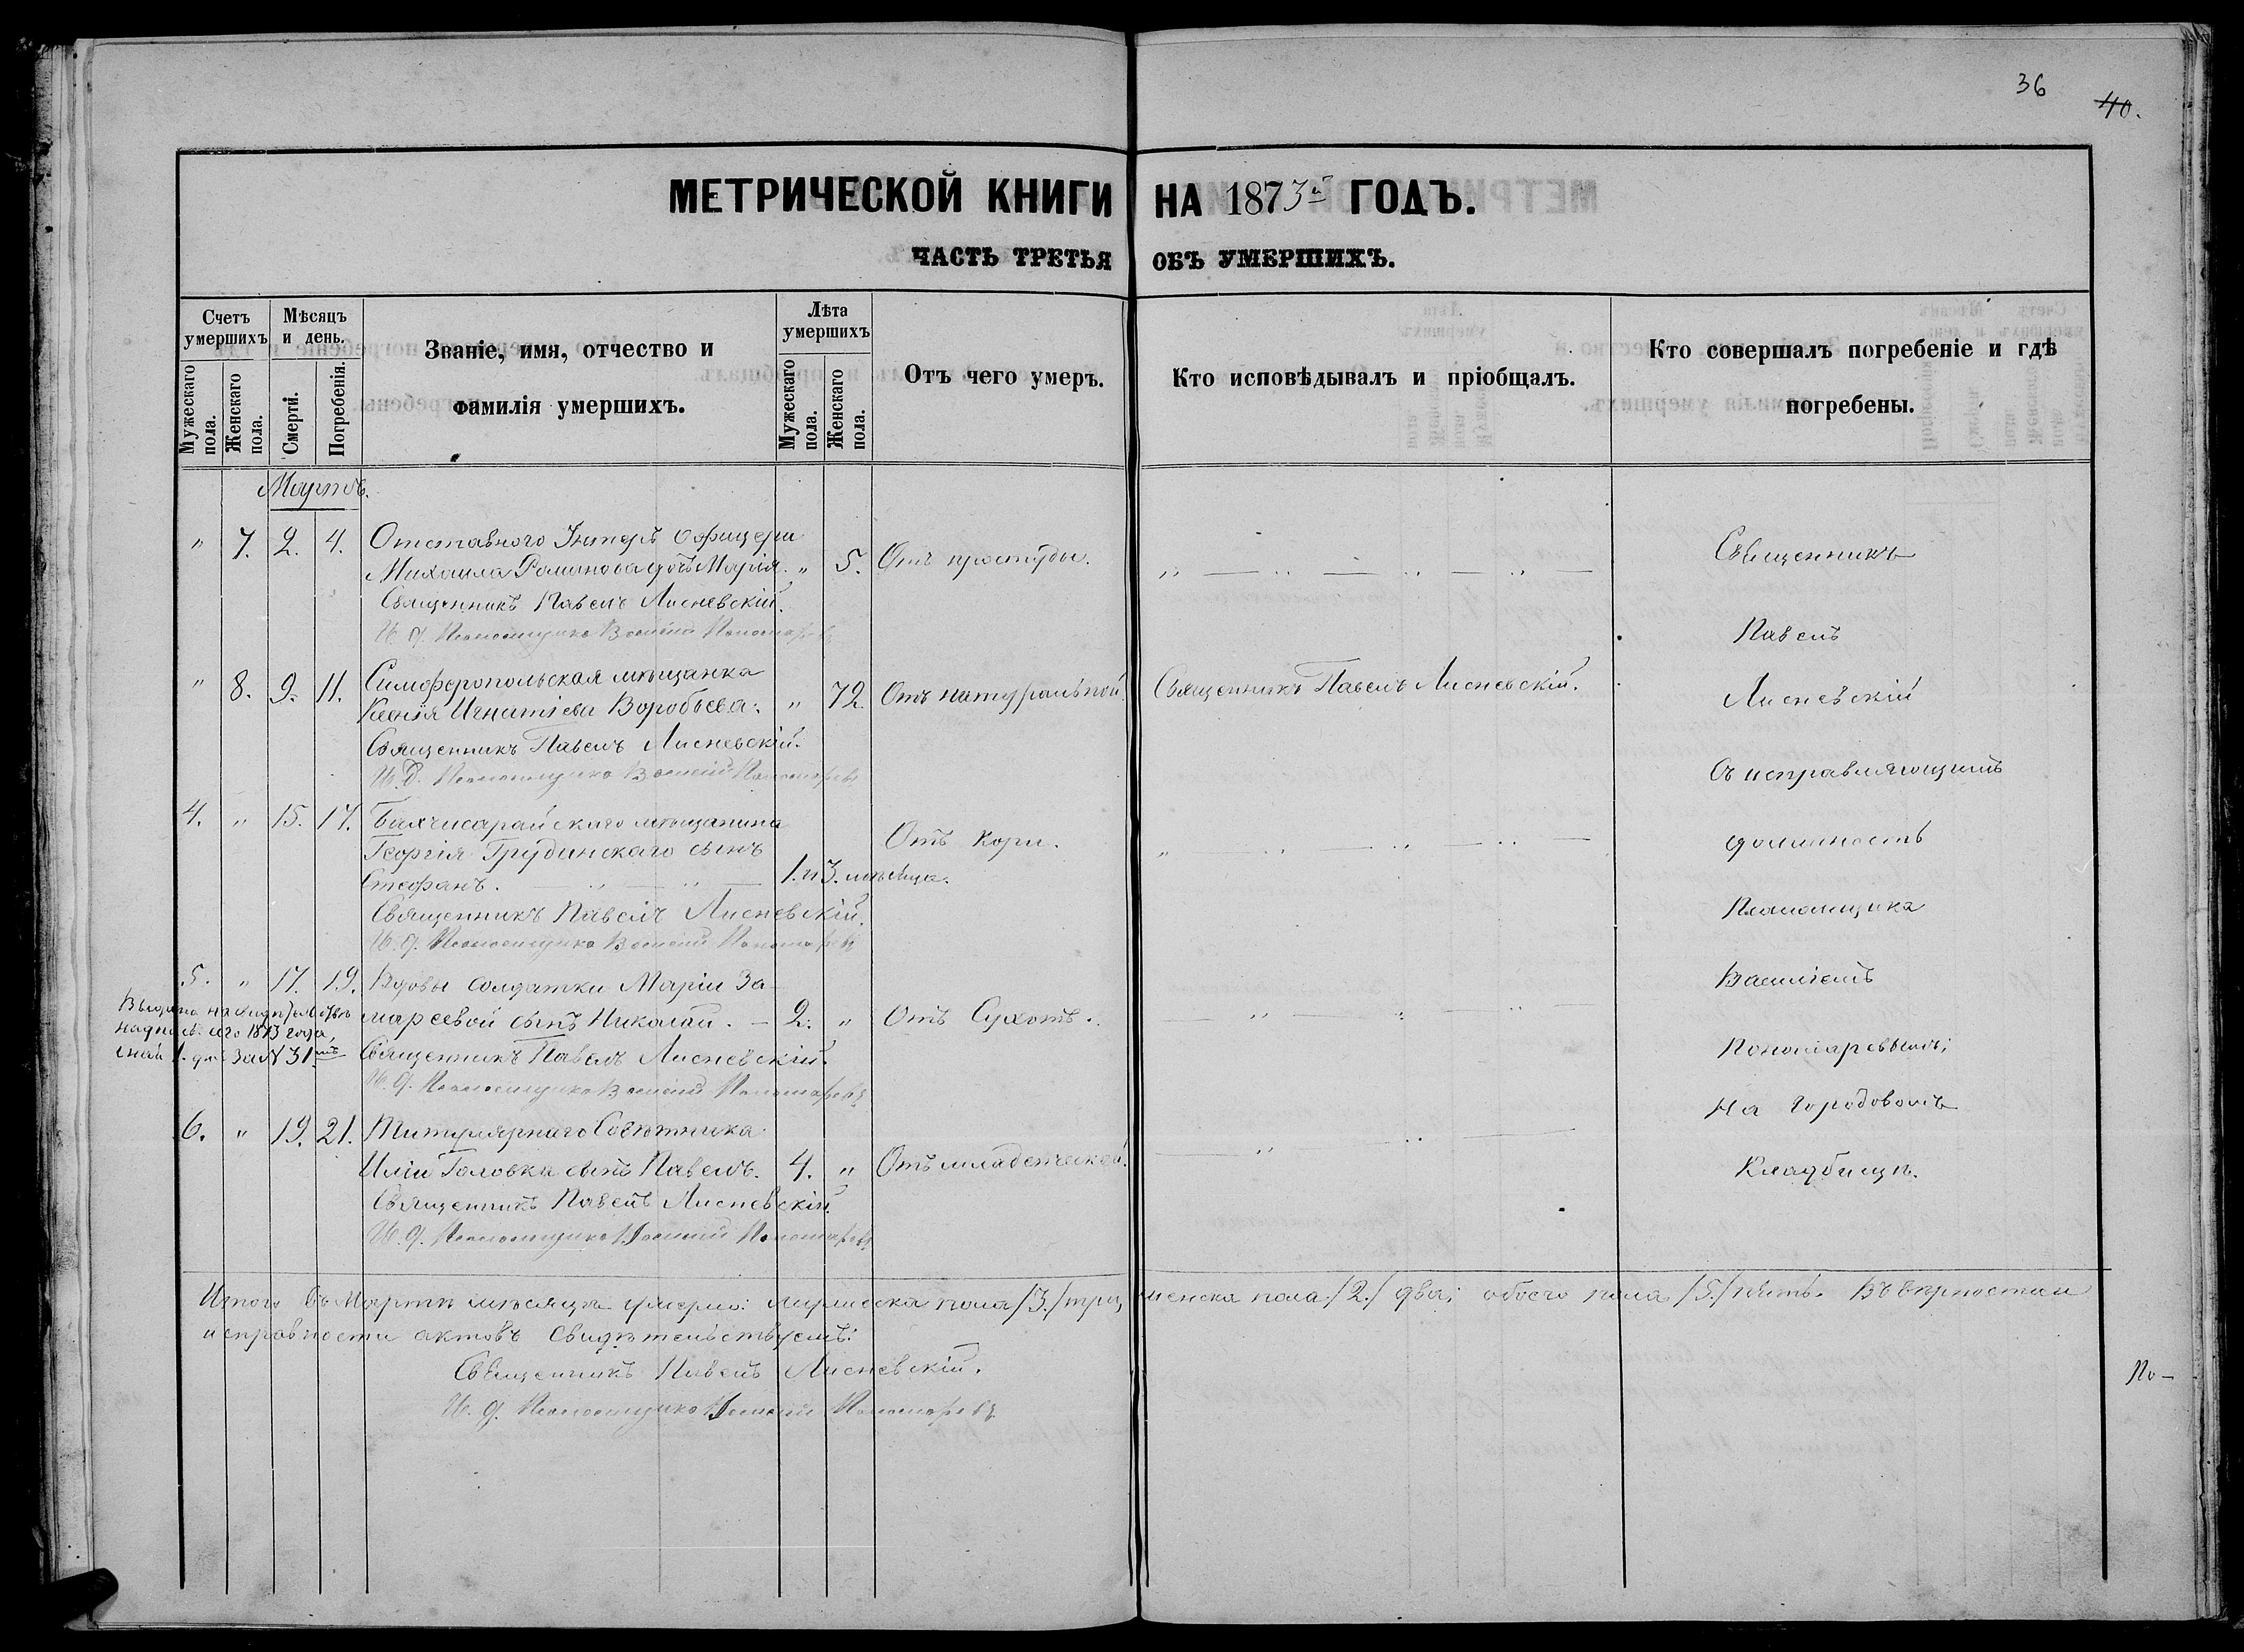 36
40.
МЕТРИЧЕСКОЙ КНИГИ НА 1873й ГОДЪ.
ЧАСТЬ ТРЕТЬЯ ОБЪ УМЕРШИХЪ.
Счетъ умершихъ
Мужескаго пола.
Женскаго пола.
Мѣсяцъ и день.
Смерти.
Погребенія.
Званіе, имя, отчество и
фамилія умершихъ.
Лѣта умершихъ
Мужескаго пола.
Женскаго пола.
Отъ чего умеръ.
Кто исповѣдывалъ и пріобщалъ.
Кто совершалъ погребеніе и гдѣ
погребены.
Мартъ.
" 7. 2. 4. Отставного Унтеръ Офицера
Михаила Романова дочь Марія. " 5. Отъ простуды.
Священникъ Павелъ Лисневскій.
И. д. Псаломщика Василій Пономаревъ
" 8. 9. 11. Симферопольская мѣщанка
Ксенія Игнатіева Воробьева. " 72. Отъ натуральной. Священникъ Павелъ Лисневскій.
Священникъ Павелъ Лисневскій.
И. д. Псаломщика Василій Пономаревъ
4. " 15. 17. Бахчисарайскаго мѣщанина
Георгія Грудинскаго сынъ Отъ кори.
Стефанъ. 1. и 3. мѣсяца.
Священникъ Павелъ Лисневскій.
И. д. Псаломщика Василій Пономаревъ
5. " 17. 19. Вдовы солдатки Маріи За-
марсевой сынъ Николай. 2. " Отъ Сухотъ.
Священникъ Павелъ Лисневскій.
И. д. Псаломщика Василій Пономаревъ
1873 года,
за № 31мъ
6. " 19. 21. Титулярнаго Совѣтника
Иліи Головка сынъ Павелъ. 4. " Отъ младенческой.
Священникъ Павелъ Лисневскій.
И. д. Псаломщика Василій Пономаревъ
Священникъ
Павелъ
Лисневскій
Съ исправляющимъ
должность
Псаломщика
Василіемъ
Пономаревымъ;
На Городовомъ
Кладбищѣ.
Итого въ Мартѣ мѣсяцѣ умерло: мужеска пола /3./ три, женска пола /2./ два; обоего пола /5./ пять. Въ вѣрности и
исправности актовъ свидѣтельствуемъ:
Священникъ Павелъ Лисневскій.
И. д. Псаломщика Василій Пономаревъ
По-